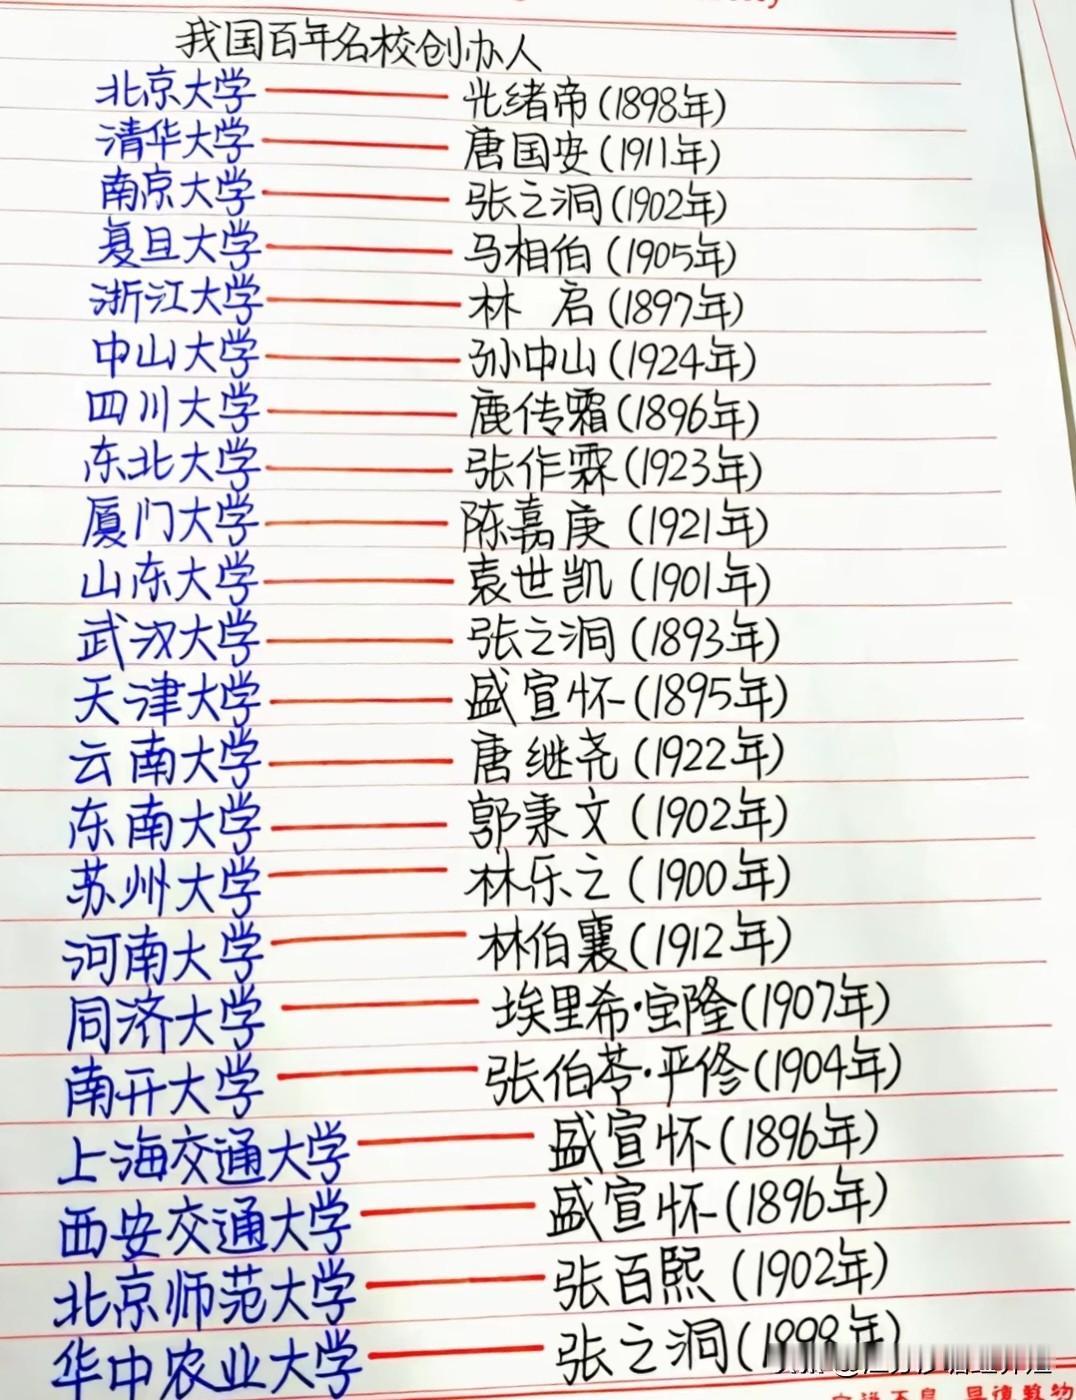 我国百年名校创办人
北京大学——光绪帝(1898年)
清华大学——唐国安(1911年)
南京大学——张之洞(1902年)
复旦大学——马相伯(1905年)
浙江大学——林 启(1897年)
中山大学——孙中山(1924年)
四川大学——鹿传霜(1896年)
东北大学——张作霖(1923年)
厦门大学——陈嘉庚(1921年)
山东大学——袁世凯(1901年)
武汉大学——张之洞(1893年)
天津大学——盛宣怀(1895年)
云南大学——唐继尧(1922年)
东南大学——郭秉文(1902年)
苏州大学——林乐之(1900年)
河南大学——林伯襄(1912年)
同济大学——埃里希·宝隆(1907年)
南开大学——张伯苓·严修(1904年)
上海交通大学——盛宣怀(1896年)
西安交通大学——盛宣怀(1896年)
北京师范大学——张百熙(1902年)
华中农业大学——张之洞(1898年)